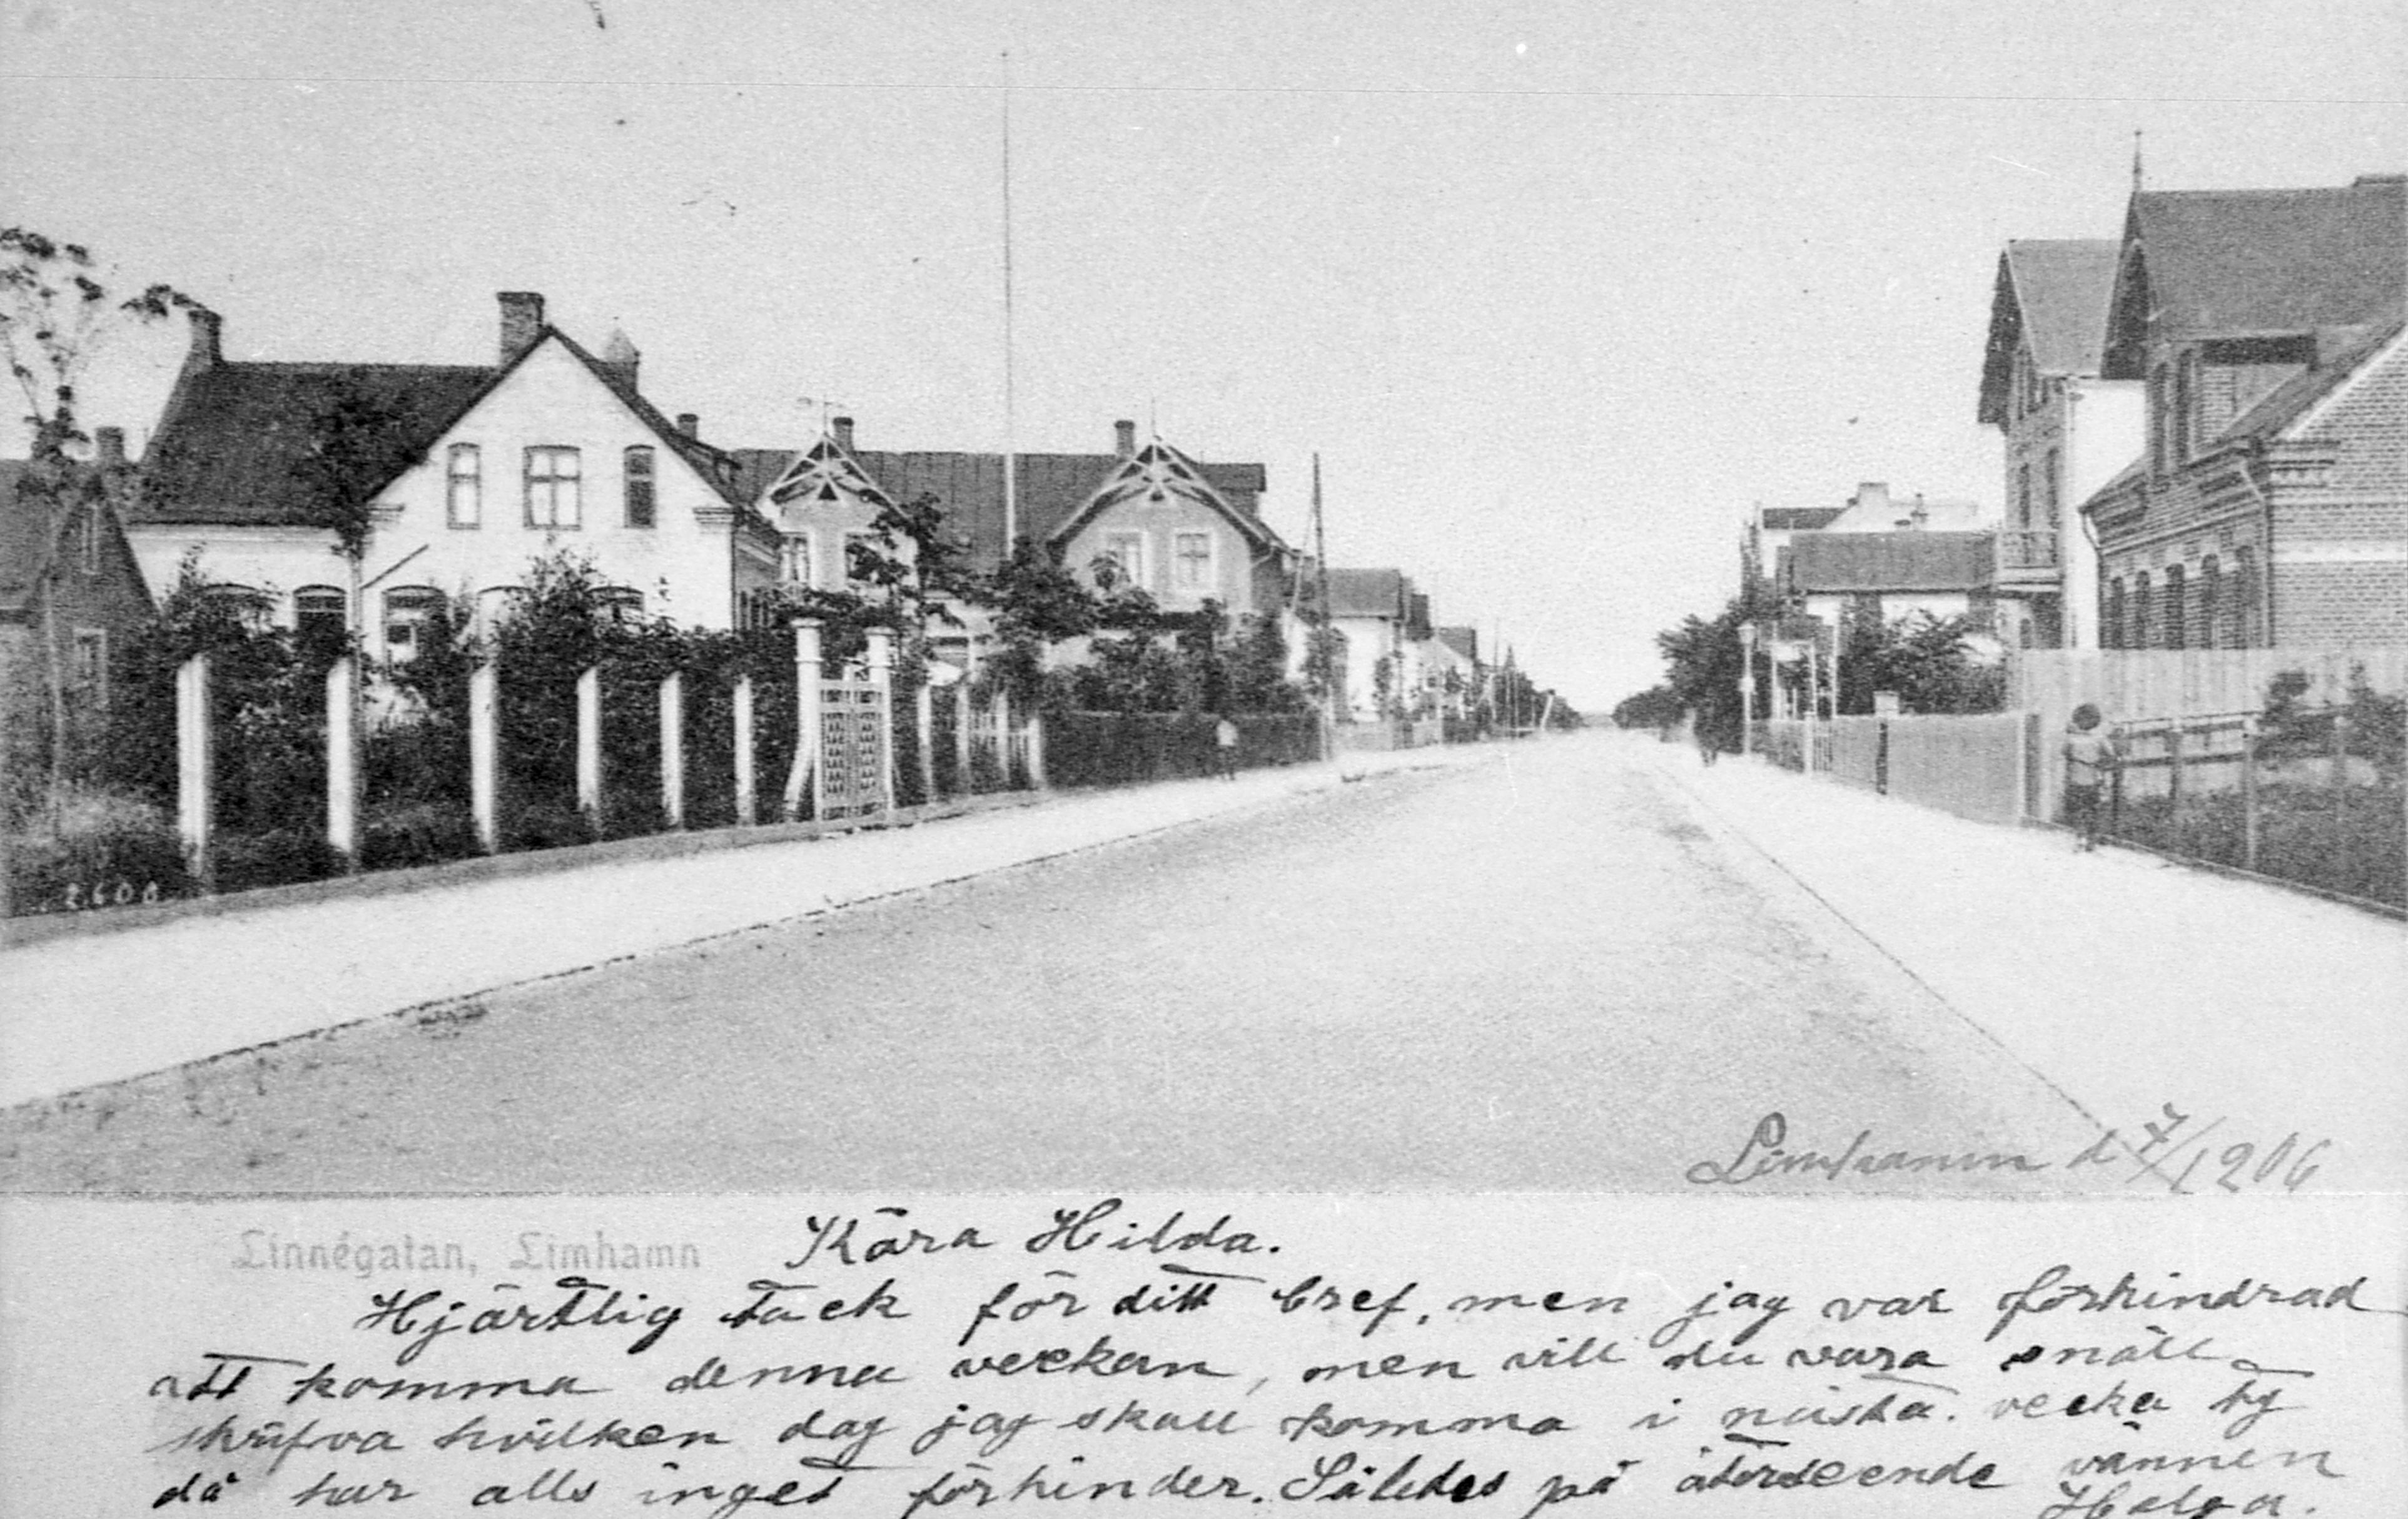 2600
Limhamn d 7/1 906
Linnégatan, Limhamn
Kära Hilda.
Hjärtlig tack för ditt bref, men jag var förhindrad
att komma denna veckan, men vill du vara snäll
skrifva hvilken dag jag skall komma i nästa vecka ty
då har alls inget förhinder. Således på återseende vännen
Helga.